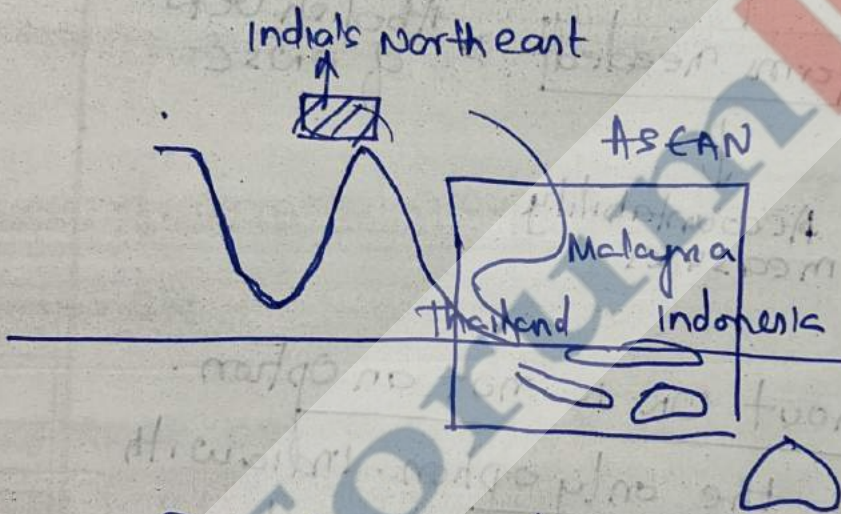 India's Northeast
ASEAN
Malaysia
Thailand
Indonesia
forum